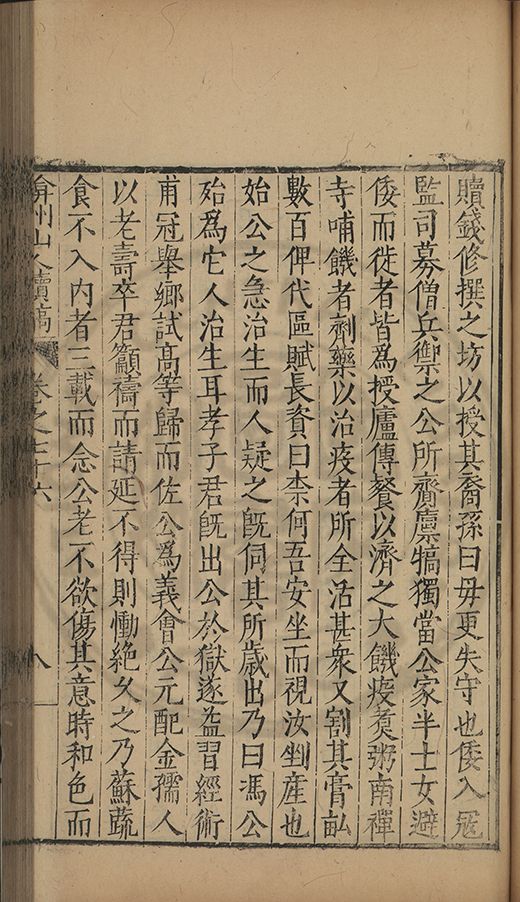 贖錢修撰之坊以授其裔孫曰毋更失守也倭入冦
監司募僧兵禦之公所齎廩犒獨當公家半士女避
倭而徙者皆為授廬傳餐以濟之大饑疫煑粥南禪
寺哺饑者劑藥以治疫者所全活甚衆又割其膏畝
數百俾代區賦長貲曰柰何吾安坐而視汝剉產也
始公之急治生而人疑之旣伺其所歲出乃曰馮公
殆爲它人治生耳孝子君旣出公於獄逐益習經術
甫冠舉鄉試高等歸而佐公爲義會公元配金孺人
以老壽卒君籲禱而請延不得則慟絶久之乃蘇蔬
食不入内者三載而念公老不欲傷其意時和色而
弇州山人續稿 卷之七十六 八